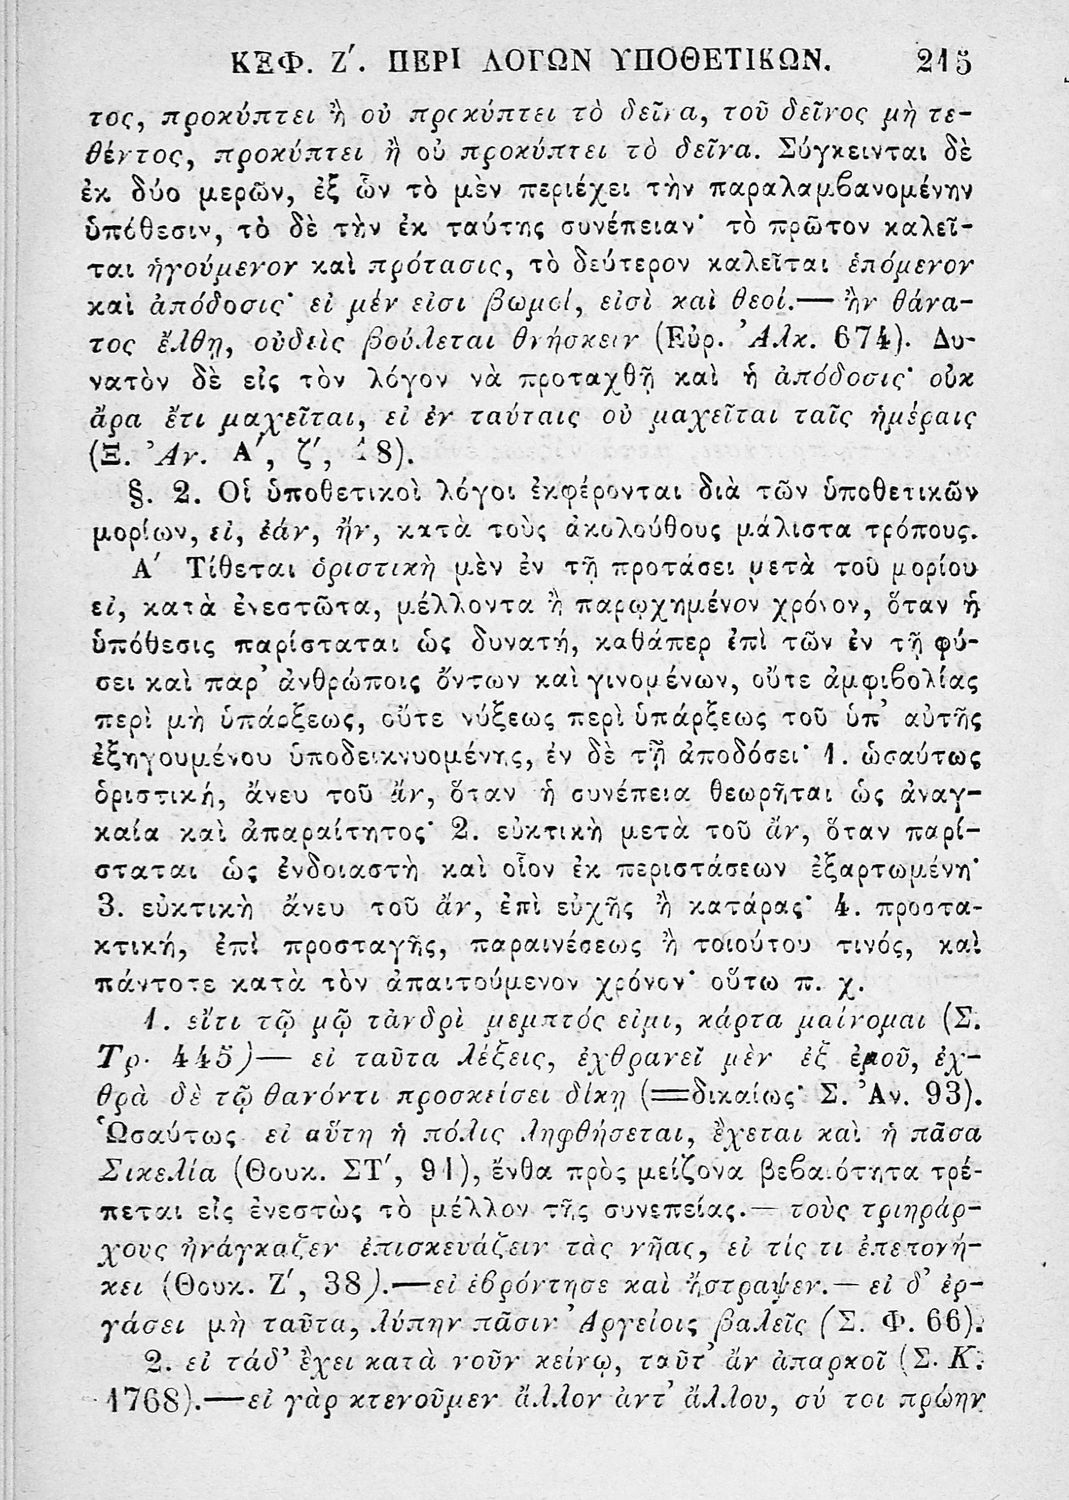 ΚΕΦ. Ζʹ. ΠΕΡΙ ΛΟΓΩΝ ΥΠΟΘΕΤΙΚΩΝ. 215
τος, προκύπτει ἢ οὐ προκύπτει τὸ δεῖνα, τοῦ δεῖνος μὴ τε-
θέντος, προκύπτει ἢ οὐ προκύπτει τὸ δεῖνα. Σύγκεινται δὲ
ἐκ δύο μερῶν, ἐξ ὧν τὸ μὲν περιέχει τὴν παραλαμβανομένην
ὑπόθεσιν, τὸ δὲ τὴν ἐκ ταύτης συνέπειαν· τὸ πρῶτον καλεῖ-
ται ἡγούμενον καὶ πρότασις, τὸ δεύτερον καλεῖται ἑπόμενον
καὶ ἀπόδοσις· εἰ μέν εἰσι βωμοί, εἰσὶ καὶ θεοί.— ἢν θάνα-
τος ἔλθῃ, οὐδεὶς βούλεται θνήσκειν (Εὐρ. Ἀλκ. 674). Δυ-
νατὸν δὲ εἰς τὸν λόγον νὰ προταχθῇ καὶ ἡ ἀπόδοσις· οὐκ
ἄρα ἔτι μαχεῖται, εἰ ἐν ταύταις οὐ μαχεῖται ταῖς ἡμέραις
(Ξ. Ἀν. Αʹ, ζʹ, 18).
§. 2. Οἱ ὑποθετικοὶ λόγοι ἐκφέρονται διὰ τῶν ὑποθετικῶν
μορίων, εἰ, ἐάν, ἤν, κατὰ τοὺς ἀκολούθους μάλιστα τρόπους.
Αʹ Τίθεται ὁριστικὴ μὲν ἐν τῇ προτάσει μετὰ τοῦ μορίου
εἰ, κατὰ ἐνεστῶτα, μέλλοντα ἢ παρῳχημένον χρόνον, ὅταν ἡ
ὑπόθεσις παρίσταται ὡς δυνατή, καθάπερ ἐπὶ τῶν ἐν τῇ φύ-
σει καὶ παρ' ἀνθρώποις ὄντων καὶ γινομένων, οὔτε ἀμφιβολίας
περὶ μὴ ὑπάρξεως, οὔτε νύξεως περὶ ὑπάρξεως τοῦ ὑπ' αὐτῆς
ἐξηγουμένου ὑποδεικνυομένης, ἐν δὲ τῇ ἀποδόσει· 1. ὡσαύτως
ὁριστική, ἄνευ τοῦ ἄν, ὅταν ἡ συνέπεια θεωρῆται ὡς ἀναγ-
καία καὶ ἀπαραίτητος· 2. εὐκτικὴ μετὰ τοῦ ἄν, ὅταν παρί-
σταται ὡς ἐνδοιαστὴ καὶ οἷον ἐκ περιστάσεων ἐξαρτωμένη·
3. εὐκτικὴ ἄνευ τοῦ ἄν, ἐπὶ εὐχῆς ἢ κατάρας· 4. προστα-
κτική, ἐπὶ προσταγῆς, παραινέσεως ἢ τοιούτου τινός, καὶ
πάντοτε κατὰ τὸν ἀπαιτούμενον χρόνον· οὕτω π. χ.
1. εἴτι τῷ μῷ τἀνδρὶ μεμπτός εἰμι, κάρτα μαίνομαι (Σ.
Τρ. 445)— εἰ ταῦτα λέξεις, ἐχθρανεῖ μὲν ἐξ ἐμοῦ, ἐχ-
θρὰ δὲ τῷ θανόντι προσκείσει δίκῃ (=δικαίως· Σ. Ἀν. 93).
Ὡσαύτως εἰ αὕτη ἡ πόλις ληφθήσεται, ἔχεται καὶ ἡ πᾶσα
Σικελία (Θουκ. ΣΤʹ, 91), ἔνθα πρὸς μείζονα βεβαιότητα τρέ-
πεται εἰς ἐνεστὼς τὸ μέλλον τῆς συνεπείας.— τοὺς τριηράρ-
χους ἠνάγκαζεν ἐπισκευάζειν τὰς νῆας, εἰ τίς τι ἐπεπονή-
κει (Θουκ. Ζʹ, 38).—εἰ ἐβρόντησε καὶ ἤστραψεν.— εἰ δ' ἐρ-
γάσει μὴ ταῦτα, λύπην πᾶσιν Ἀργείοις βαλεῖς (Σ. Φ. 66).
2. εἰ τάδ' ἔχει κατὰ νοῦν κείνῳ, ταῦτ' ἂν ἀπαρκοῖ (Σ. Κ.
1768).—εἰ γὰρ κτενοῦμεν ἄλλον ἀντ' ἄλλου, σύ τοι πρώην